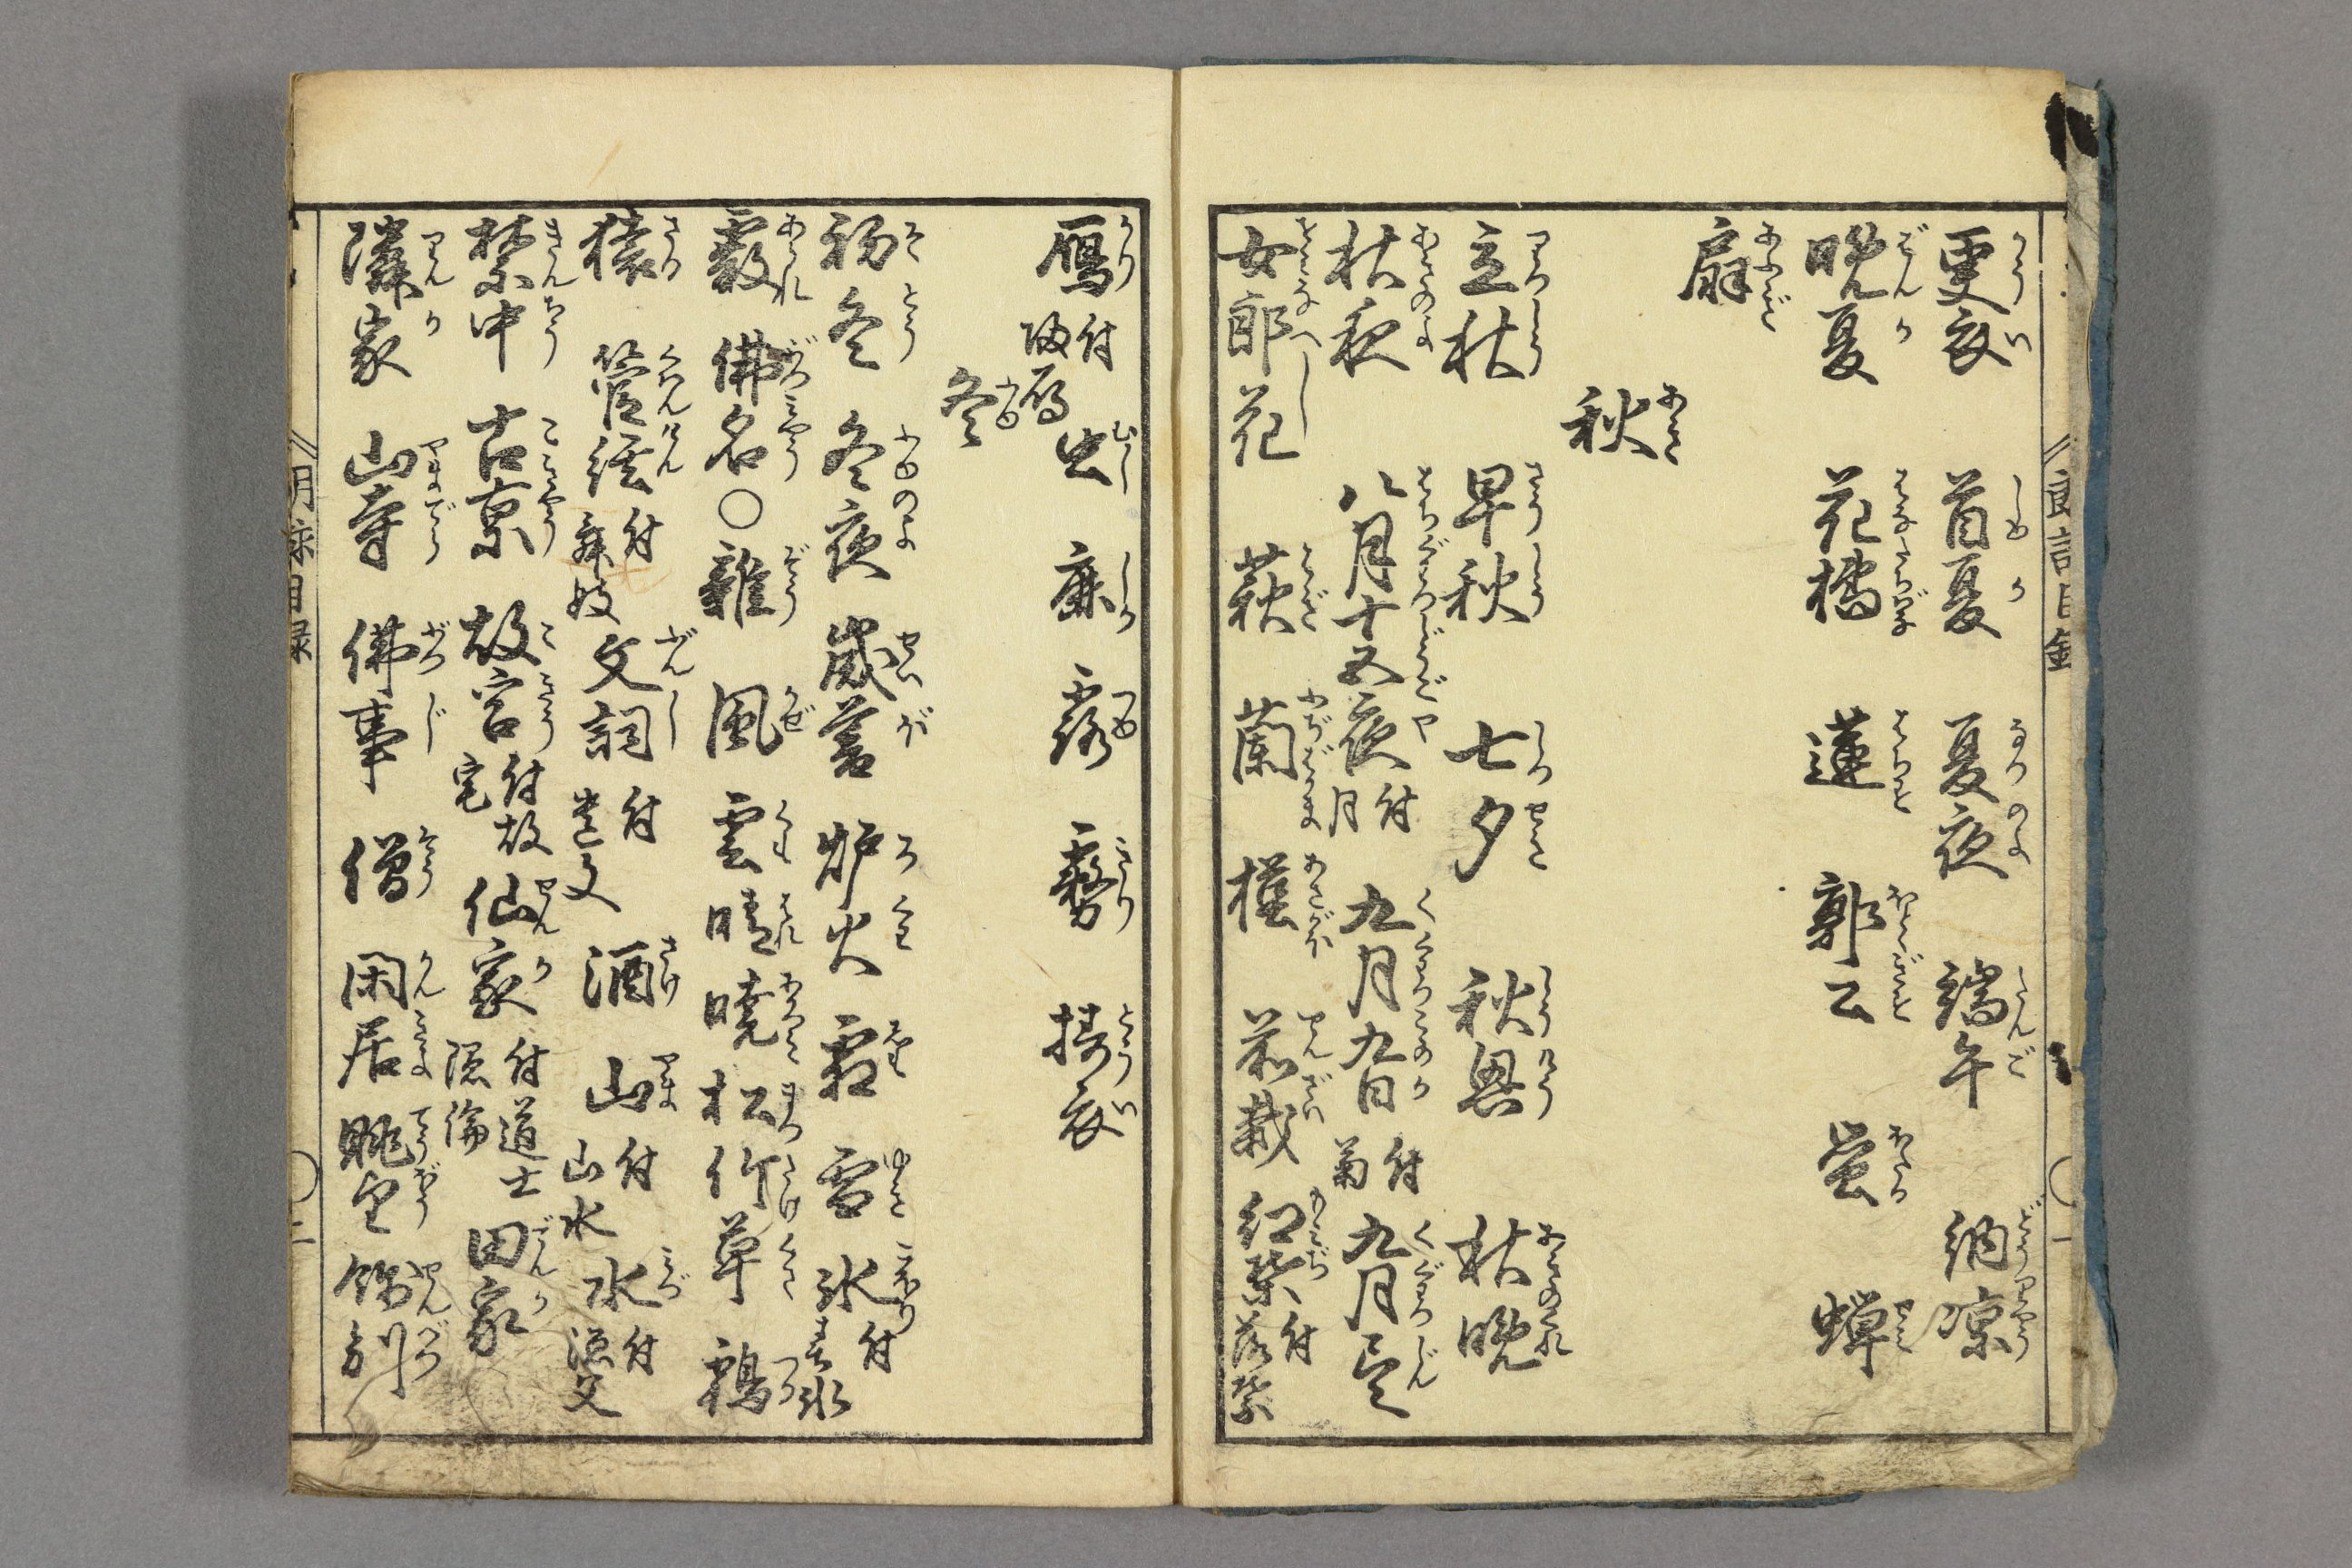 更衣 首夏 夏夜 端午 納凉
晩夏 花橘 蓮 郭公 蛍 蝉
扇
秋
立秋 早秋 七夕 秋興 秋晩
秋夜 八月十五夜 付月 九月九日 付菊 九月尽
女郎花 萩 蘭 槿 前栽 紅葉 付落葉
雁 付帰雁 虫 鹿 露 霧 擣衣
冬
初冬 冬夜 歳暮 炉火 霜 雪 氷 付春氷
霰 佛名 〇雜 風 雲 晴 暁 松 竹 草 鶴
猿 管絃 付舞妓 文詞 付遺文 酒 山 付山水 水 付漁父
禁中 古京 故宮 付故宅 仙家 付道士隠倫 田家
隣家 山寺 佛事 僧 閑居 眺望 餞別